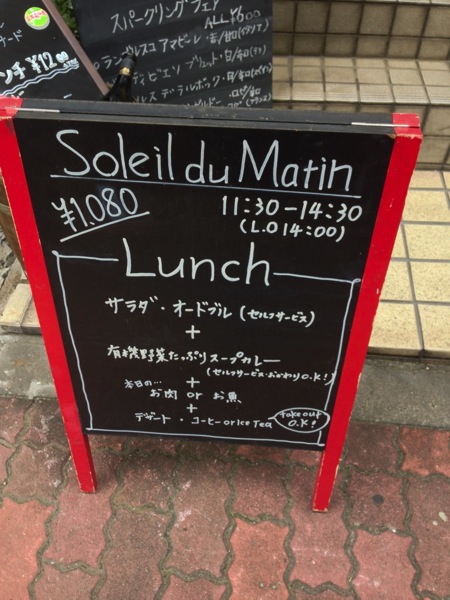 スパークリングフェア
ALL ¥600
ンチ ¥1200
Soleil du Matin
¥1.080
11:30-14:30
(L.O 14:00)
Lunch
サラダ・オードブル (セルフサービス)
+
有機野菜たっぷりスープカレー
(セルフサービス・おかわりO.K!)
本日の… +
お肉 or お魚
+
デザート・コーヒー or Ice Tea
take out O.K!